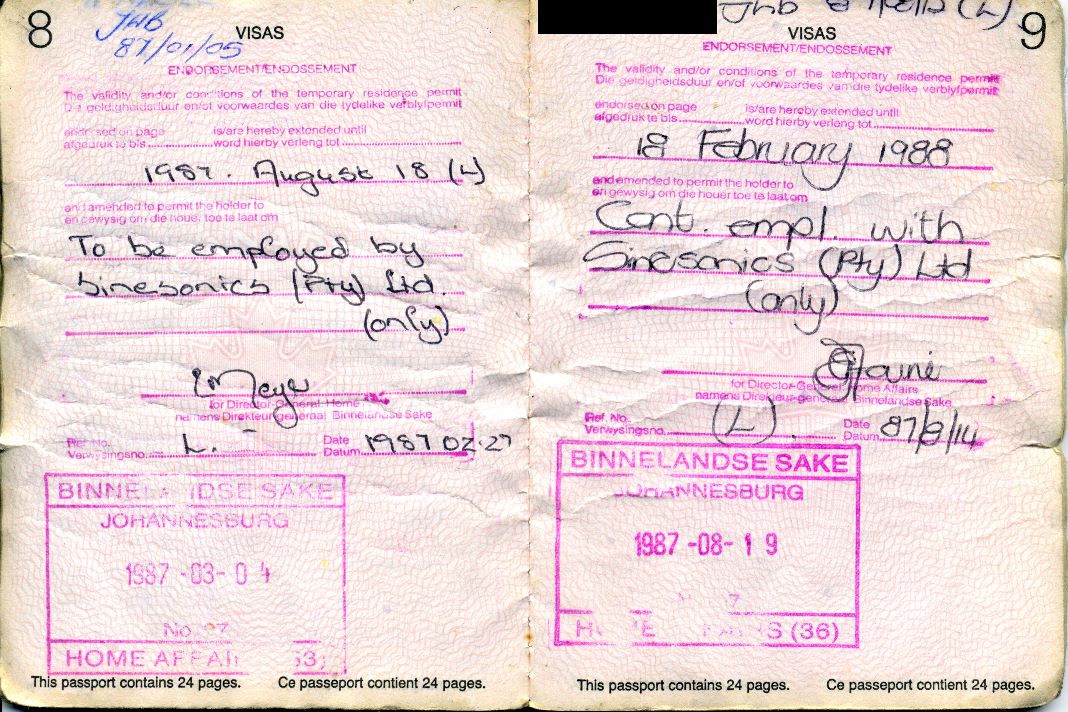 8
JHB
87/01/05
VISAS
ENDORSEMENT/ENDOSSEMENT
The validity and/or conditions of the temporary residence permit
Die geldigheidsduur en/of voorwaardes van die tydelike verblyfpermit
endorsed on page is/are hereby extended until
afgedruk te bls word hierby verleng tot
1987. August 18 (L)
and amended to permit the holder to
en gewysig om die houer toe te laat om
To be employed by
Sinesonics (Pty) Ltd.
(only)
for Director-General Home
namens Direkteur-generaal Binnelandse Sake
Ref. No.
Verwysingsno. L. Date
Datum 1987 02.27
BINNELANDSE SAKE
JOHANNESBURG
1987 -03- 0 4
No. 27
HOME AFFAI 53)
This passport contains 24 pages. Ce passeport contient 24 pages.
JHB (L)
9
VISAS
ENDORSEMENT/ENDOSSEMENT
The validity and/or conditions of the temporary residence permit
Die geldigheidsduur en/of voorwaardes van die tydelike verblyfpermit
endorsed on page is/are hereby extended until
afgedruk te bls word hierby verleng tot
18 February 1988
and amended to permit the holder to
en gewysig om die houer toe te laat om
Cont. empl. with
Sinesonics (Pty) Ltd
(only)
for Director-General Home Affairs
namens Direkteur-generaal Binnelandse Sake
Ref. No.
Verwysingsno. (L) Date
Datum 87/8/14
BINNELANDSE SAKE
JOHANNESBURG
1987 -08- 1 9
7
HOME AFFAIRS (36)
This passport contains 24 pages. Ce passeport contient 24 pages.